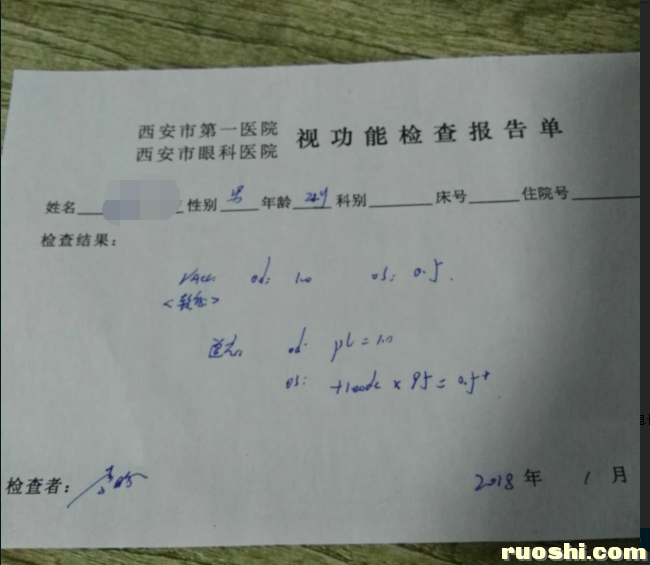 西安市第一医院
西安市眼科医院
视功能检查报告单
姓名 性别 男 年龄 24y 科别 床号 住院号
检查结果:
VAcc od: 1.0 os: 0.5.
od: pl = 1.0
os: +1.00dc × 95 = 0.5+
检查者:
2018年 1月
ruoshi.com